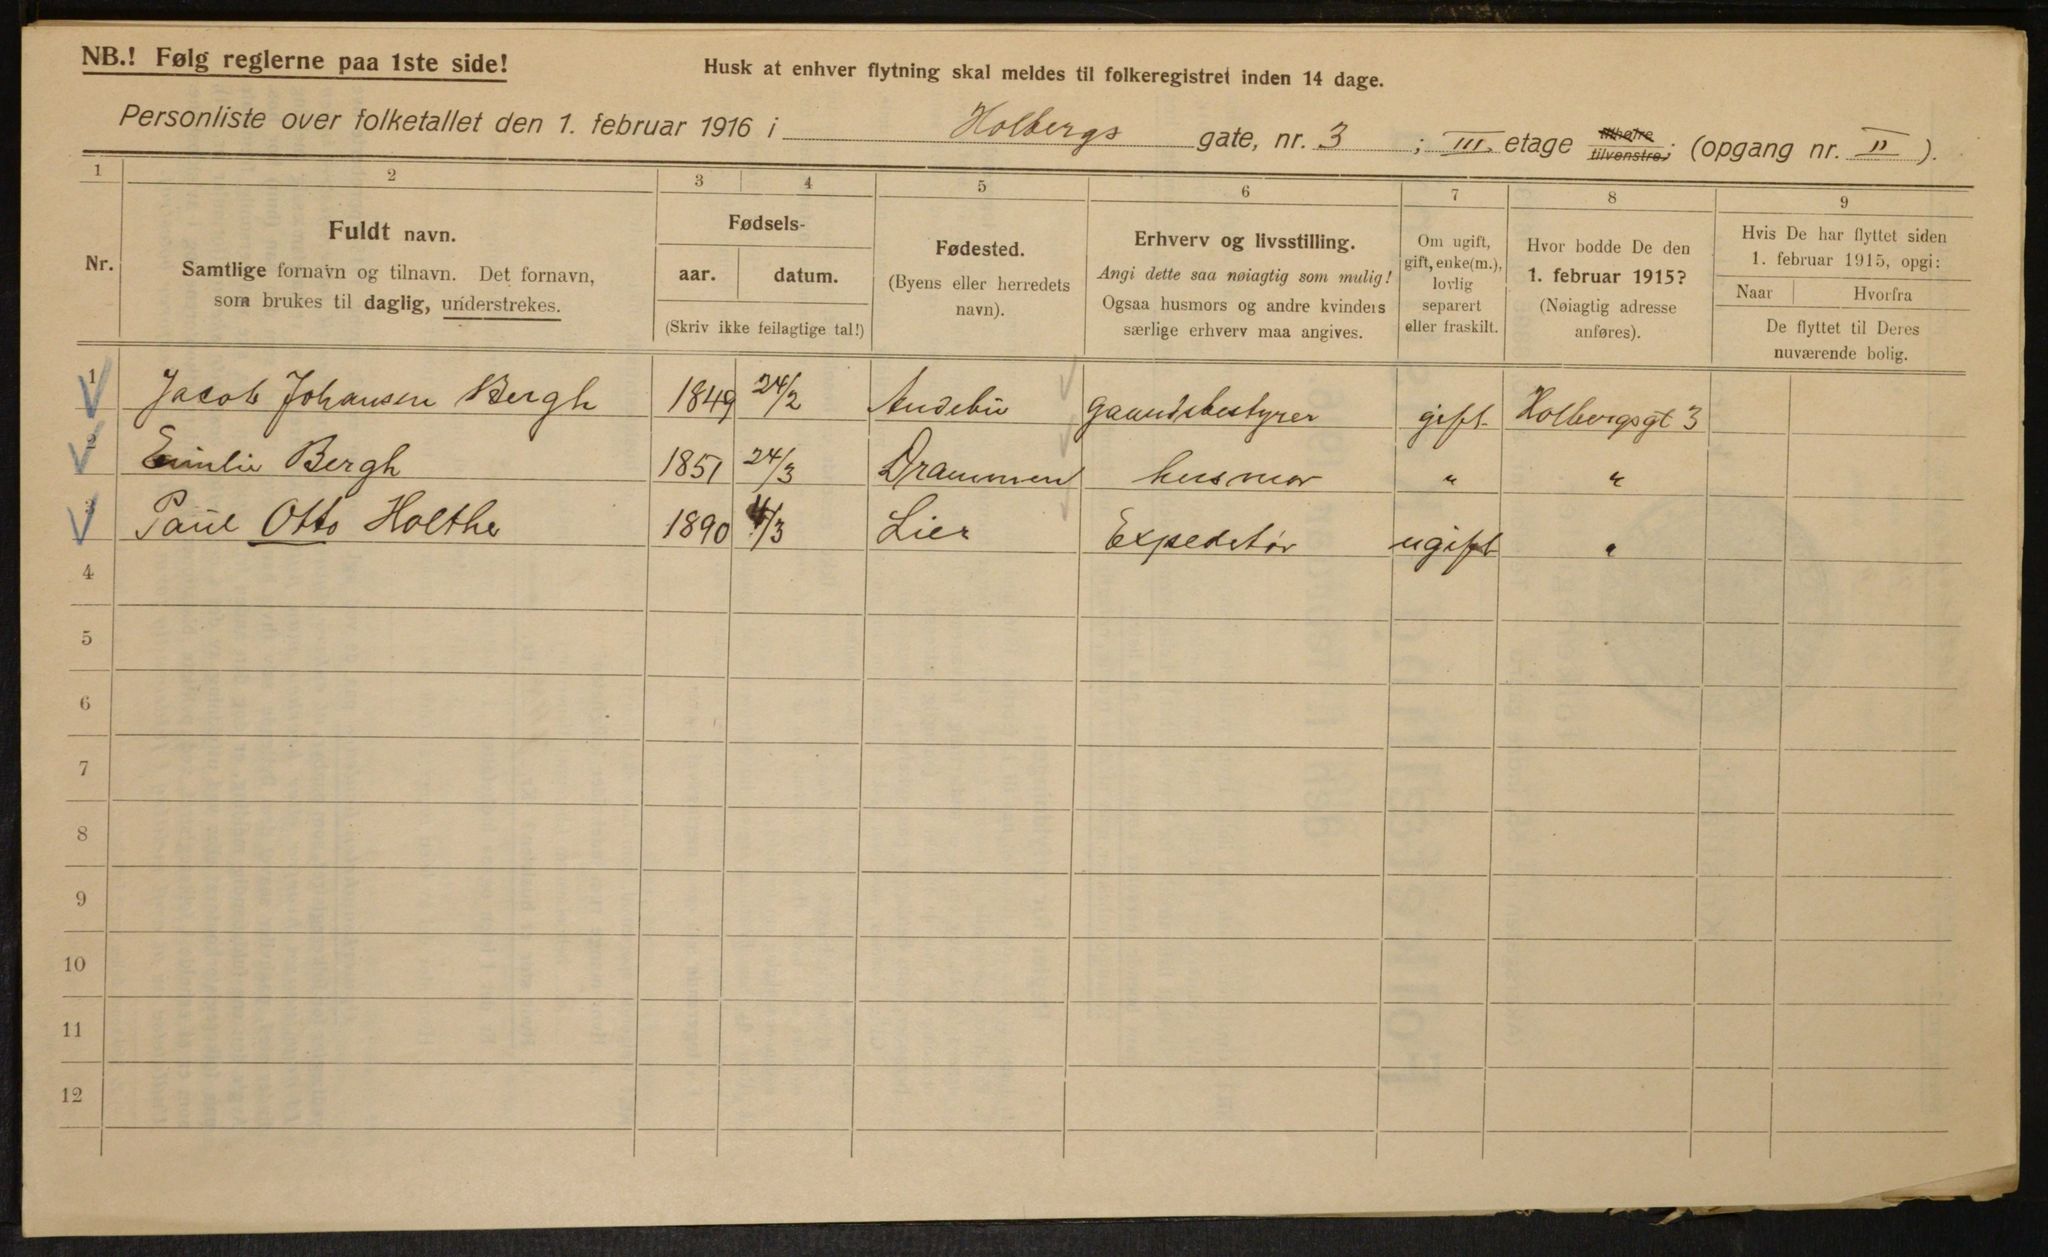 NB.! Følg reglerne paa 1ste side!
Husk at enhver flytning skal meldes til folkeregistret inden 14 dage.
Personliste over folketallet den 1. februar 1916 i Holbergs gate, nr. 3 ; III. etage tilhøire tilvenstre; (opgang nr. II ).
1 2 3 4 5 6 7 8 9
Nr.
Fuldt navn.
Samtlige fornavn og tilnavn. Det fornavn,
som brukes til daglig, understrekes.
Fødsels-
aar. datum.
(Skriv ikke feilagtige tal!)
Fødested.
(Byens eller herredets
navn).
Erhverv og livsstilling.
Angi dette saa nøiagtig som mulig!
Ogsaa husmors og andre kvinders
særlige erhverv maa angives.
Om ugift,
gift, enke(m.),
lovlig
separert
eller fraskilt.
Hvor bodde De den
1. februar 1915?
(Nøiagtig adresse
anføres).
Hvis De har flyttet siden
1. februar 1915, opgi:
Naar Hvorfra
De flyttet til Deres
nuværende bolig.
1 Jacob Johansen Bergh 1849 24/2 Andebu gaardsbestyrer gift Holbergsgt 3
2 Emilie Bergh 1851 24/3 Drammen husmor " "
3 Paul Otto Holthe 1890 4/3 Lier Expeditør ugift "
4
5
6
7
8
9
10
11
12